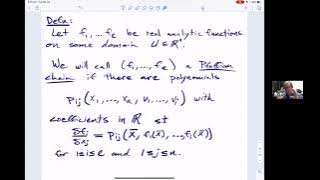 Defn:
Let f₁,...,fₑ be real analytic functions
on some domain U ⊆ ℝⁿ.
We will call (f₁,...,fₑ) a Pfaffian
chain if there are polynomials
Pᵢⱼ(x₁,...,xₙ,v₁,...,vᵢ) with
coefficients in ℝ st
∂fᵢ/∂xⱼ = Pᵢⱼ(x̄, f₁(x̄),...,fᵢ(x̄))
for 1≤i≤ℓ and 1≤j≤n.